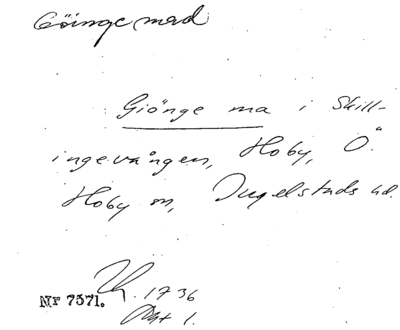 Göinge mad
Giönge ma i Skill-
ingevången, Hoby, Ö.
Hoby sn, Ingelstads hd.
Nr 7571. 1736
Akt 1.